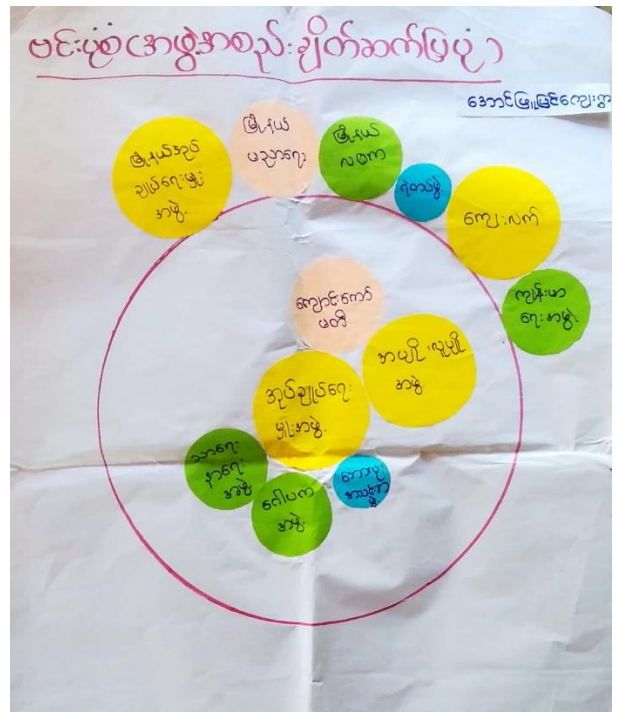 ဗင်းပုံစံ(အဖွဲ့အစည်းချိတ်ဆက်ပြပုံ)
အောင်မြူမြင်ကျေးရွာ
မြို့နယ်အုပ်
ချုပ်ရေးမှူး
အဖွဲ့
မြို့နယ်
ပညာရေး
မြို့နယ်
လဝက
ရဲတပ်ဖွဲ့
ကျေးလက်
ကျန်းမာ
ရေးအဖွဲ့
ကျောင်းကော်
မတီ
အမျိုးသူမျိုး
အဖွဲ့
အုပ်ချုပ်ရေး
မှူးအဖွဲ့
သာရေး
နာရေး
အဖွဲ့
ဂေါပက
အဖွဲ့